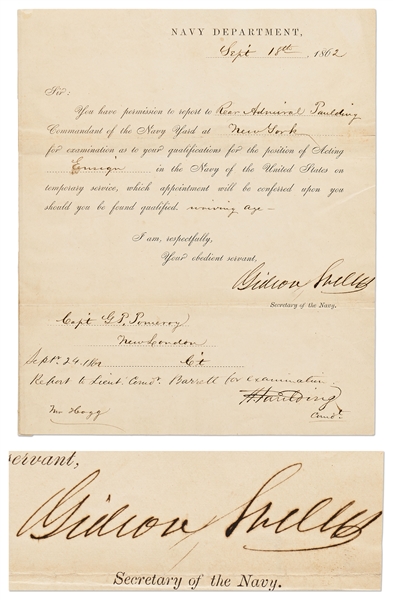 NAVY DEPARTMENT,
Sept 18th, 1862
Sir:
You have permission to report to Rear Admiral Paulding
Commandant of the Navy Yard at New York
for examination as to your qualifications for the position of Acting
Ensign in the Navy of the United States on
temporary service, which appointment will be conferred upon you
should you be found qualified. waiving age —
I am, respectfully,
Your obedient servant,
Gideon Welles
Secretary of the Navy.
Capt G. P. Pomeroy
New London
Ct
Sept. 24. 1862
Report to Lieut. Comd. Barrett for examination.
H Paulding
Comdt.
Mr Hogg
servant,
Gideon Welles
Secretary of the Navy.